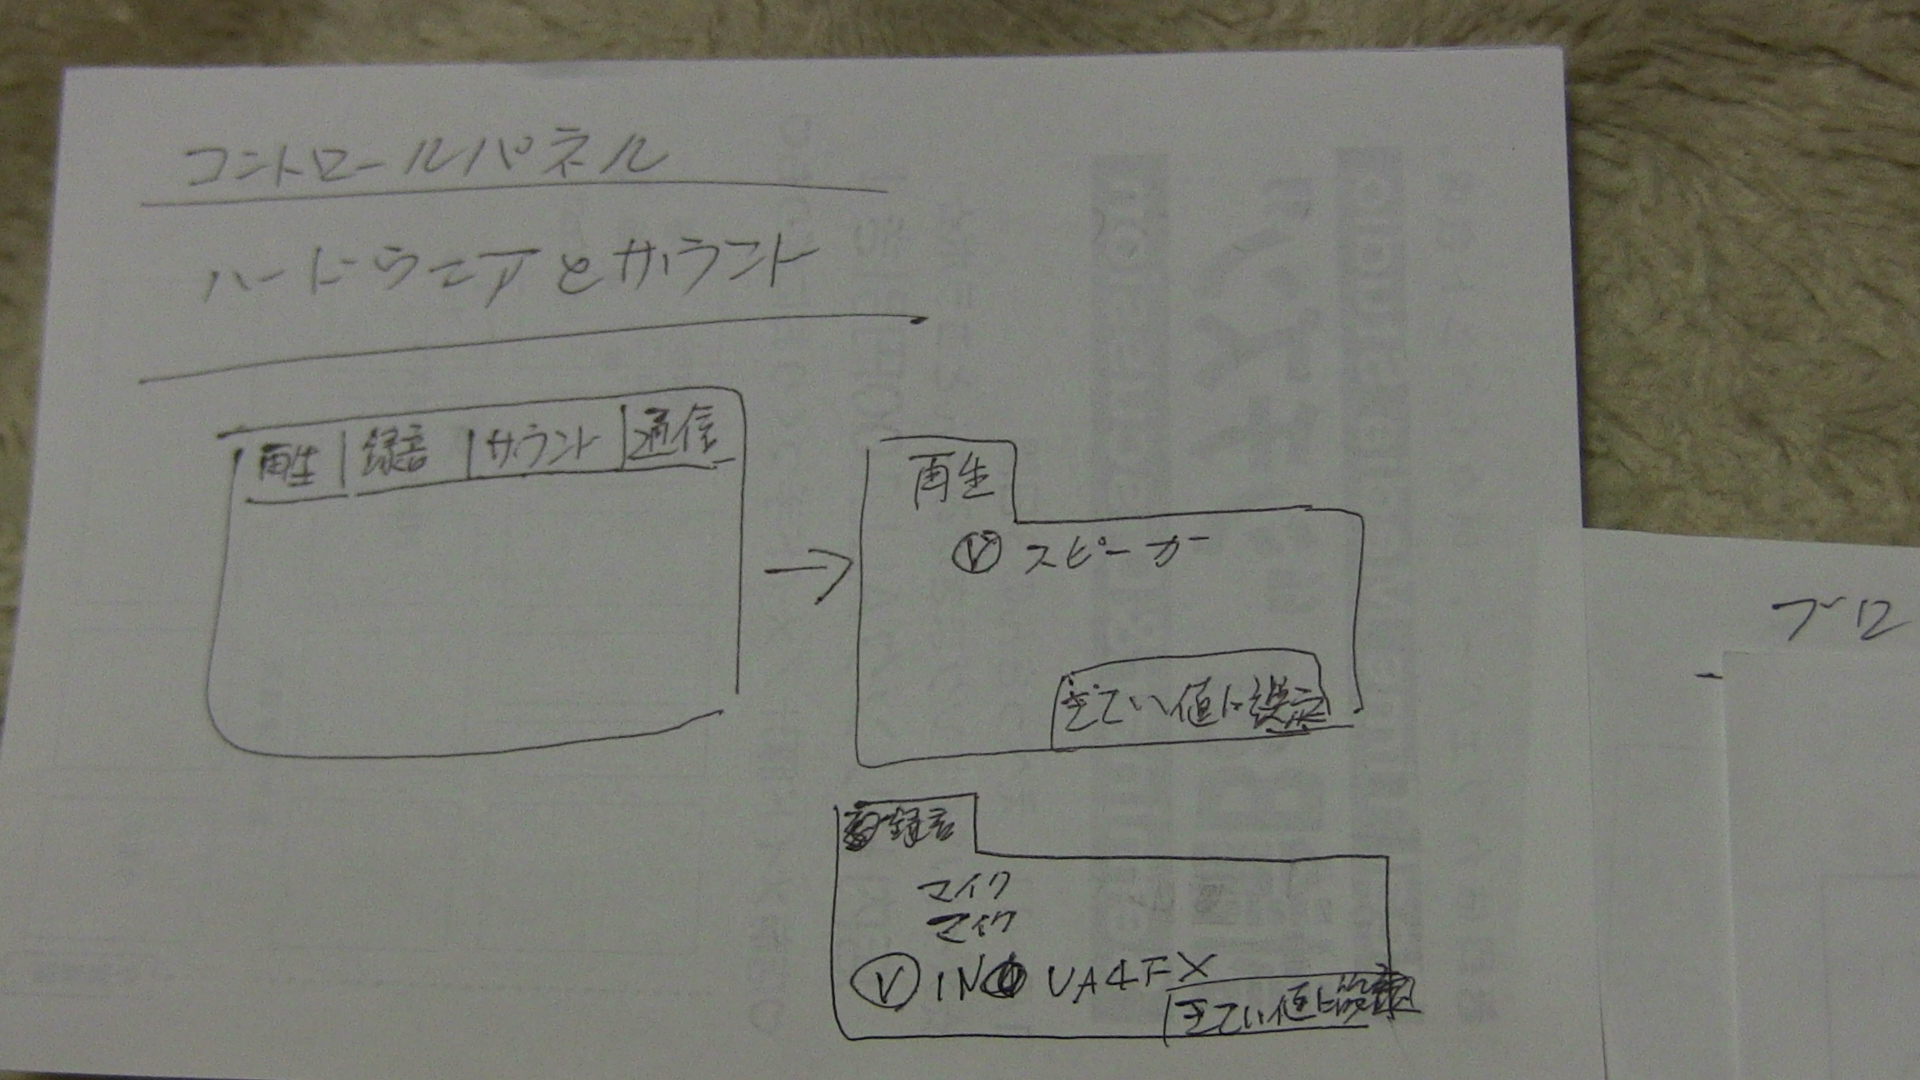 コントロールパネル
ハードウエアとサウンド
再生 録音 サウンド 通信
再生
スピーカー
きてい値に設定
録音
マイク
マイク
IN UA4FX
きてい値に
ブロ